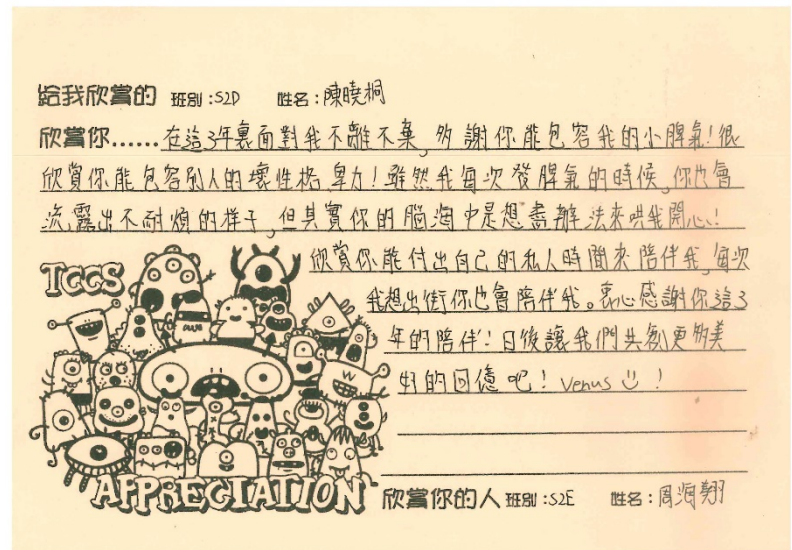 給我欣賞的 班別:S2D 姓名:陳曉桐
欣賞你......在這3年裏面對我不離不棄,多謝你能包容我的小脾氣!很
欣賞你能包容別人的壞性格,畀力!雖然我每次發脾氣的時候,你也會
流露出不耐煩的样子,但其實你的腦海中是想盡辦法來哄我開心!
欣賞你能付出自己的私人時間來陪伴我,每次
我想出街你也會陪伴我。衷心感謝你這3
年的陪伴!日後讓我們共創更多美
好的回憶吧! Venus !
TCCS
APPRECIATION
欣賞你的人 班別:S2E 姓名:周海翔